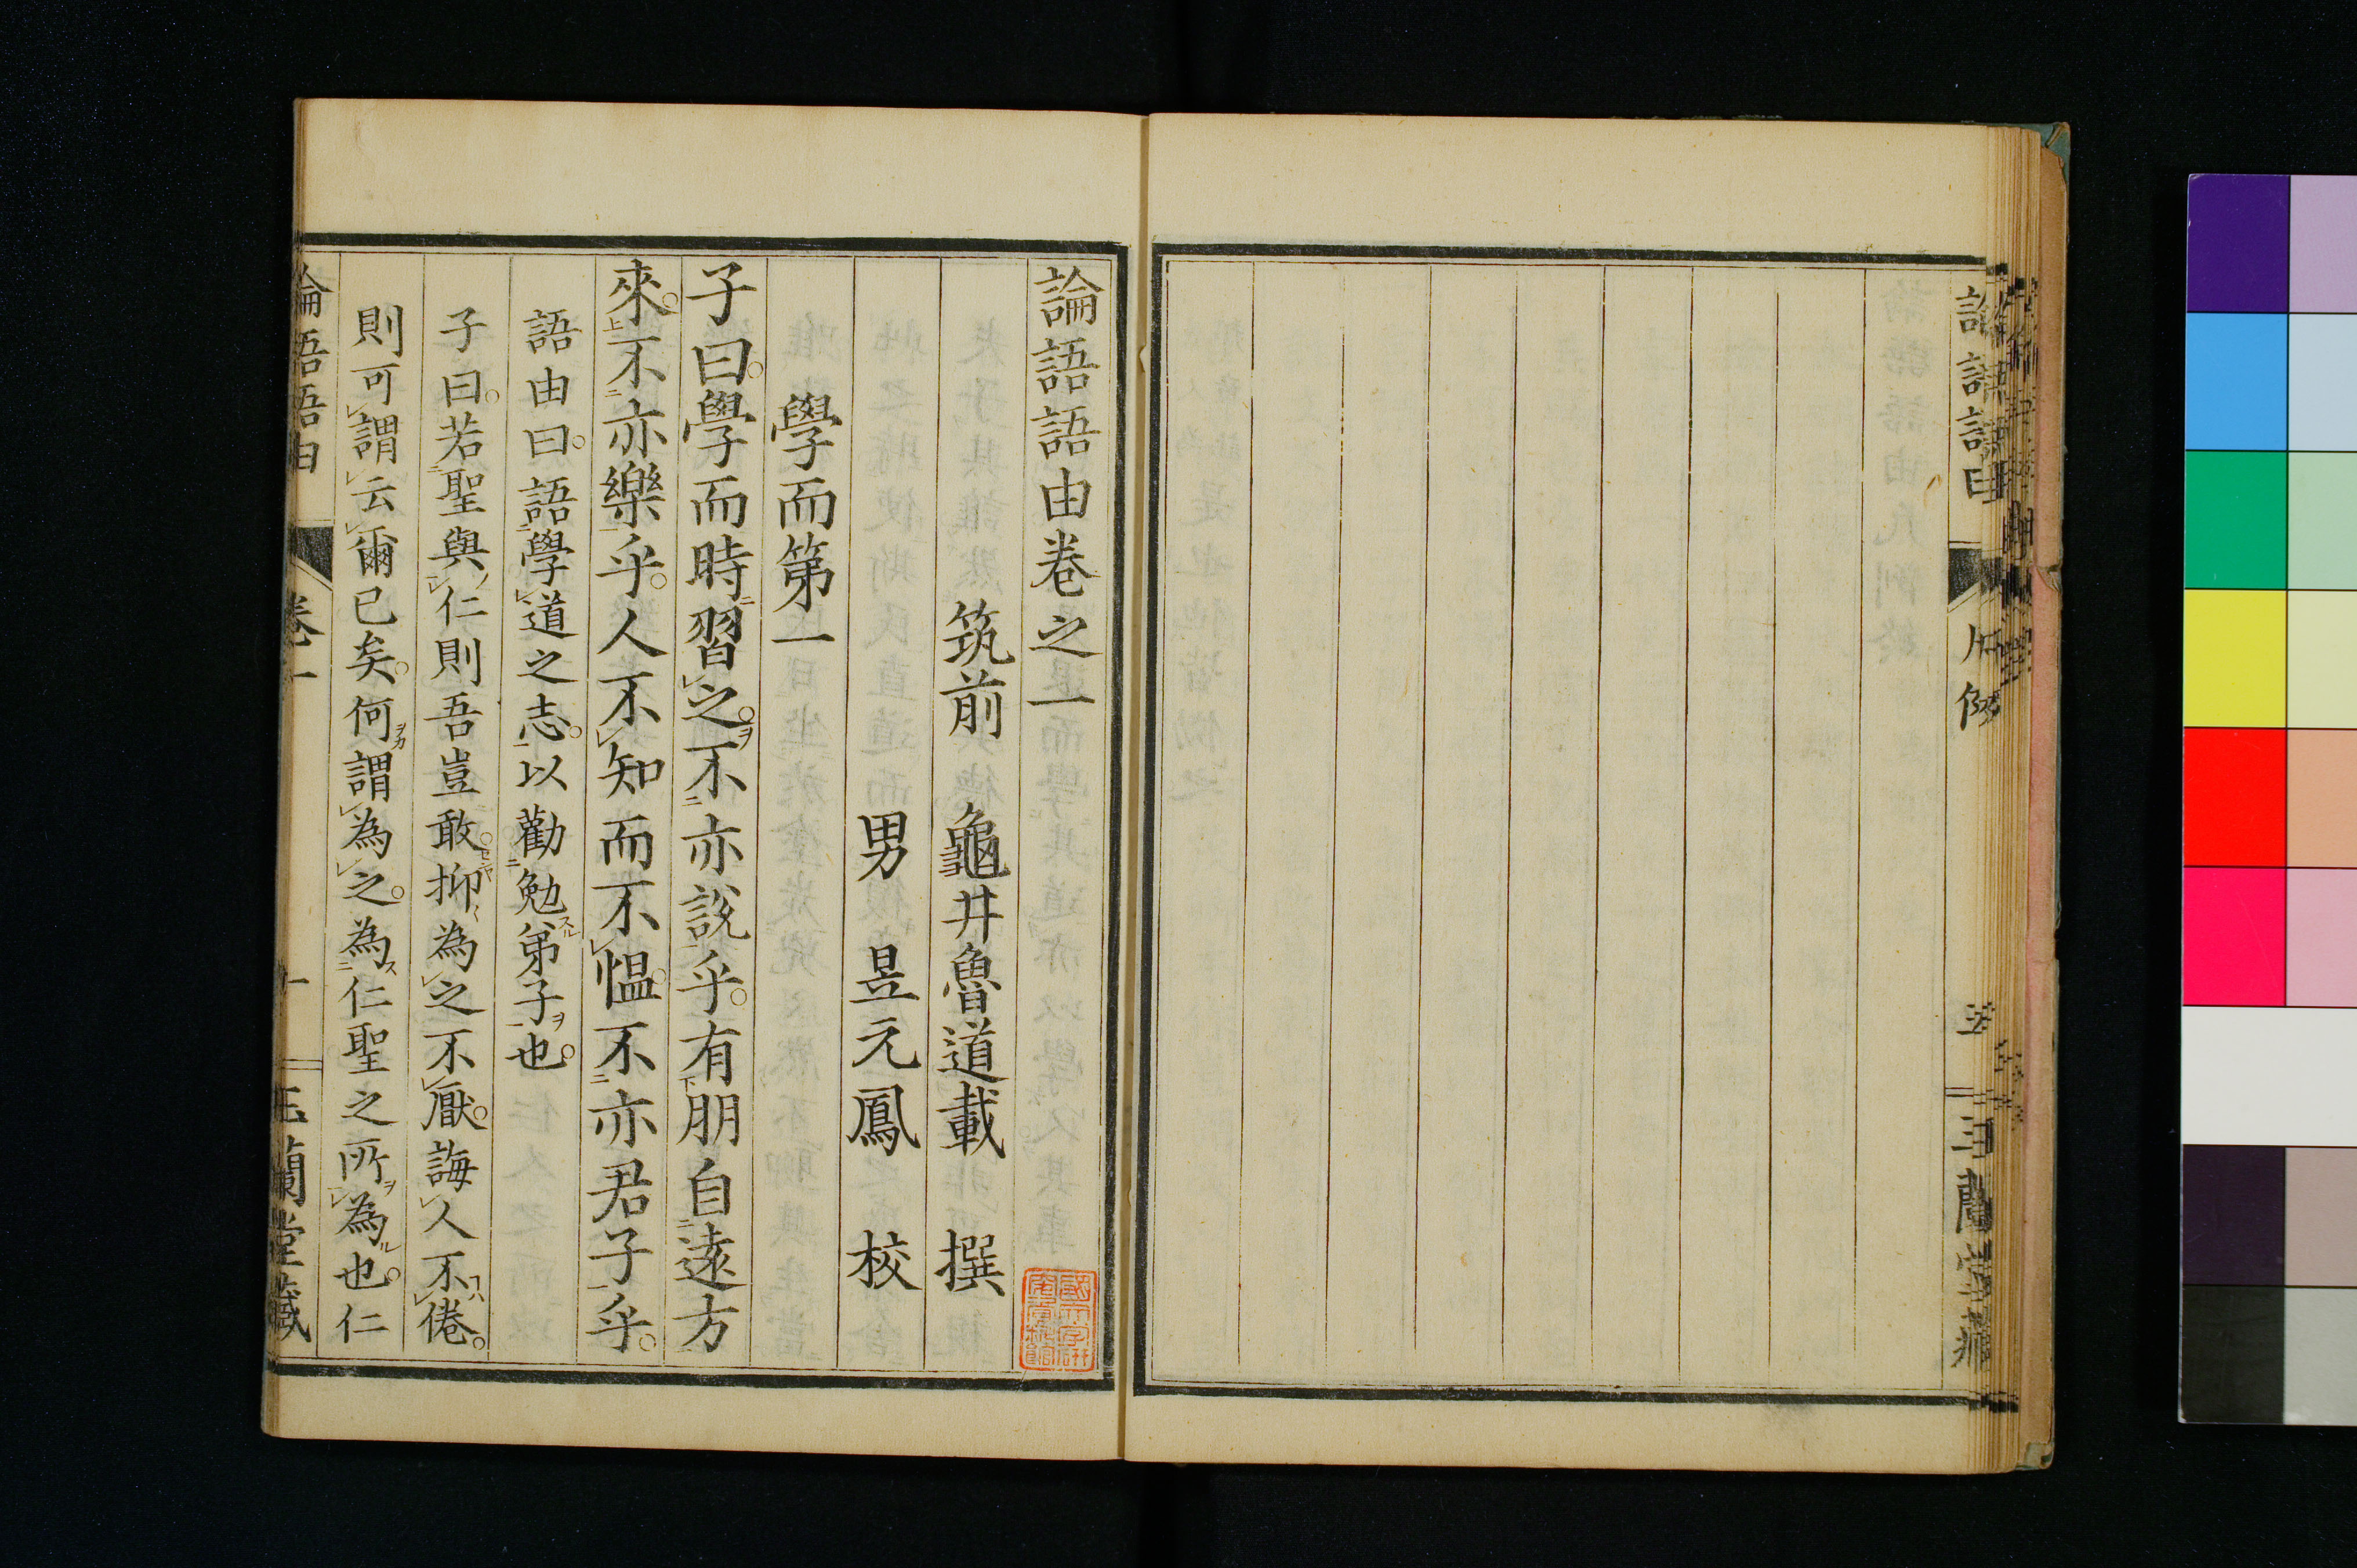 論語語由卷之一
筑前 龜井魯道載 撰
男 昱元鳳 校
學而第一
子曰學而時習之不亦說乎有朋自遠方
來不亦樂乎人不知而不慍不亦君子乎
語由曰語學道之志以勸勉弟子也
子曰若聖與仁則吾豈敢抑為之不厭誨人不倦
則可謂云爾已矣何謂為之為仁聖之所為也仁
論語語由 卷一 一 玉蘭堂藏